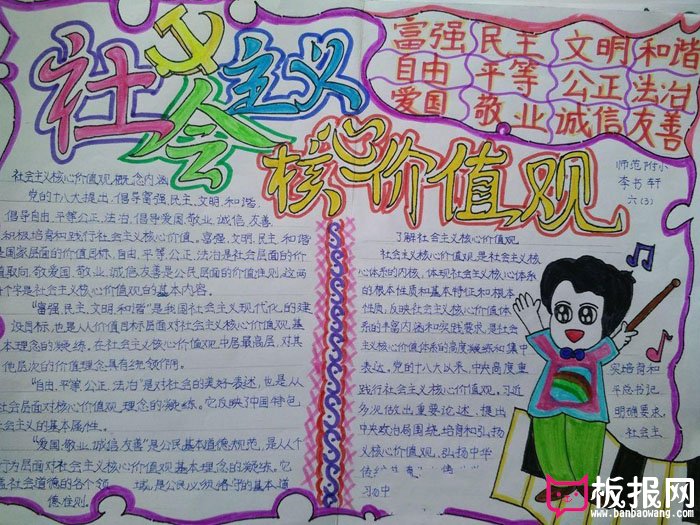 社会主义
核心价值观
富强 民主 文明 和谐
自由 平等 公正 法治
爱国 敬业 诚信 友善
师范附小
李书轩
六(3)
社会主义核心价值观概念内涵
党的十八大提出,倡导富强、民主、文明、和谐,
倡导自由、平等、公正、法治,倡导爱国、敬业、诚信、友善,
积极培育和践行社会主义核心价值。富强、文明、民主、和谐
是国家层面的价值目标,自由、平等、公正、法治是社会层面的价
值取向,敬爱国、敬业、诚信、友善是公民层面的价值准则,这两
个字是社会主义核心价值观的基本内容。
“富强、民主、文明、和谐”是我国社会是现代化的建
设目标,也是从人价值目标层面对社会主义核心价值观,基
本理念的凝练,在社会主义核心价值观中居最高层,对其
他层次的价值理念具有统领作用。
“自由、平等、公正、法治”是对社会的美好表述,也是从
社会层面对核心价值观、理念的凝练。它反映了中国特色
社会主义的基本属性。
“爱国、敬业、诚信、友善”是公民基本道德规范,是从个
行为层面对社会主义核心价值观基本理念的凝练。它
盖社会道德的各个领域,是公民必须恪守的基本道
德准则。
了解社会主义核心价值观
社会主义核心价值观是社会主义核
心体系的内核,体现社会主义核心体系
的根本性质和基本特征和根本
性质,反映社会主义核心价值体
系的丰富内涵和实践要求,是社会
主义核心价值体系的高度凝练和集中
表达。党的十八大以来,中央高度重 实培育和
践行社会主义核心价值观。习近 平总书记
多次做出重要论述、提出 明确要求。
中央政治局围绕培育和弘扬 社会主
义核心价值观、弘扬中华
习
板报网
www.banbaowang.com